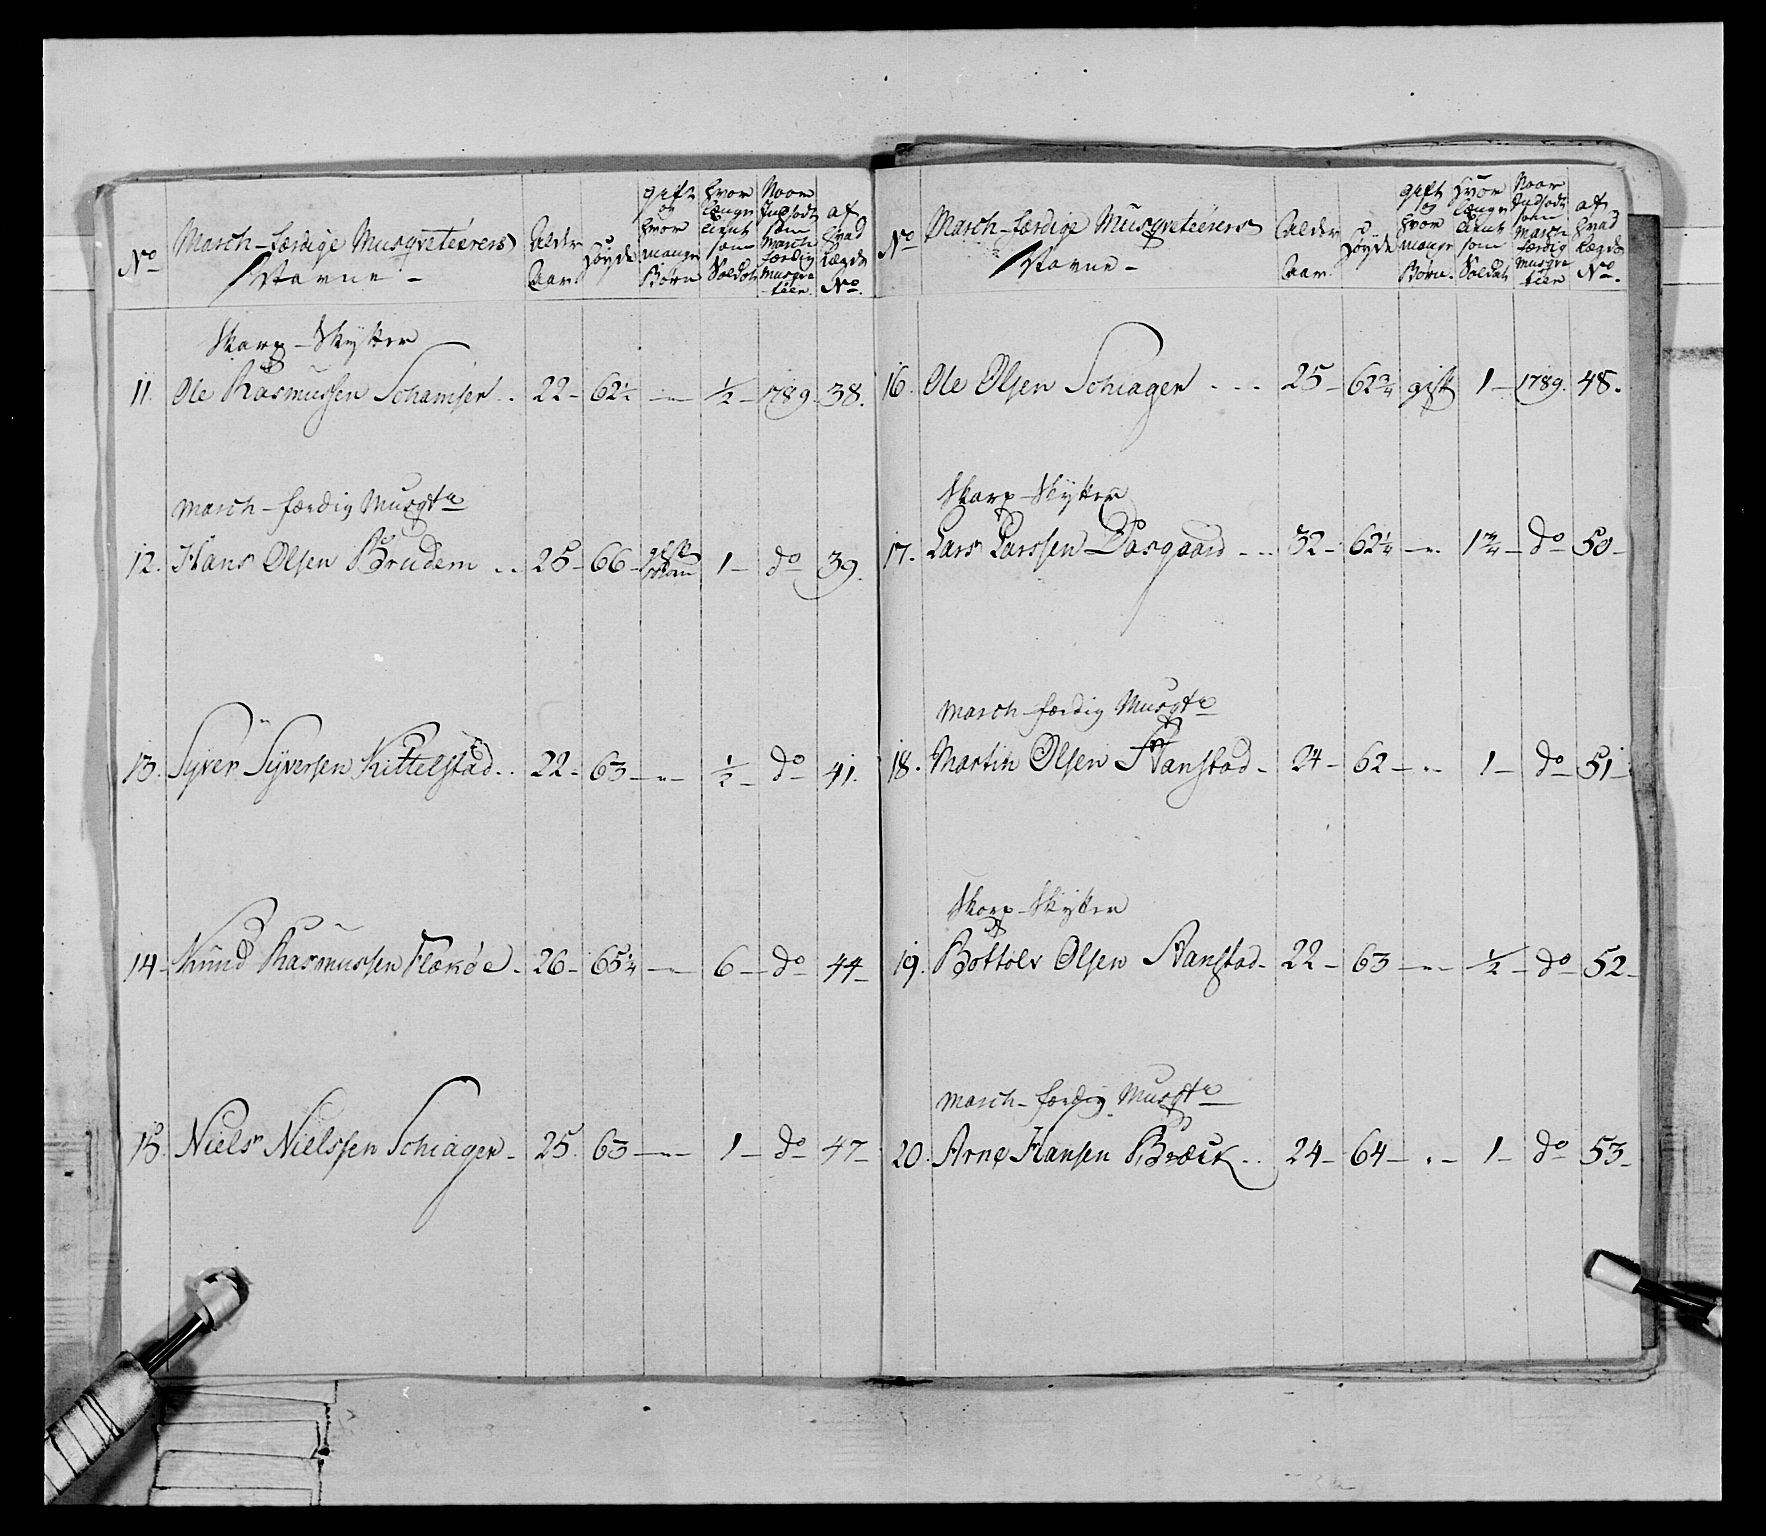 No
March-færdige Musqveteerers
Navne -
Alder
Aar
Høyde
gift
og
hvor
mange
Børn
hvor
længe
tient
som
Soldat
Naar
Indsadt
som
March
færdig
Musqve
teer
af
hvad
Lægds
No.
Skarp-Skytter
11. Ole Rasmussen Schamser .. 22- 62½ -"- ½- 1789. 38.
March-færdig Musqt
12. Hans Olsen Brudem .. 25- 66- gift 1- do 39.
13. Syver Syversen Kittelstad .. 22- 63- -"- ½- do 41.
14- Knud Rasmussen Flækøe - 26- 65¼ -"- 6- do 44-
15. Niels Nielssen Schiager - 25. 63- -"- 1- do 47-
No
March-færdige Musqveteerers
Navne -
Alder
Aar
Høyde
gift
og
hvor
mange
Børn.
Hvor
længe
tient
som
Soldat
Naar
Indsadt
som
March
færdig
Musqve
teer
af
hvad
Lægds
No.
16. Ole Olsen Schiager - - - 25- 62¾ gift 1- 1789. 48.
Skarp-Skytter
17. Lars Larssen Dasgaard - .. 32- 62¼ -"- 1¾- do 50-
March-færdig Musqt
18. Martin Olsen Aanstad - 24- 62- -"- 1- do 51-
Skarp-Skytter
19. Bottolv Olsen Aanstad - 22- 63- -"- ½- do 52-
March-færdig Musqt
20. Arne Hansen Bræck .. 24- 64- -"- 1- do 53-